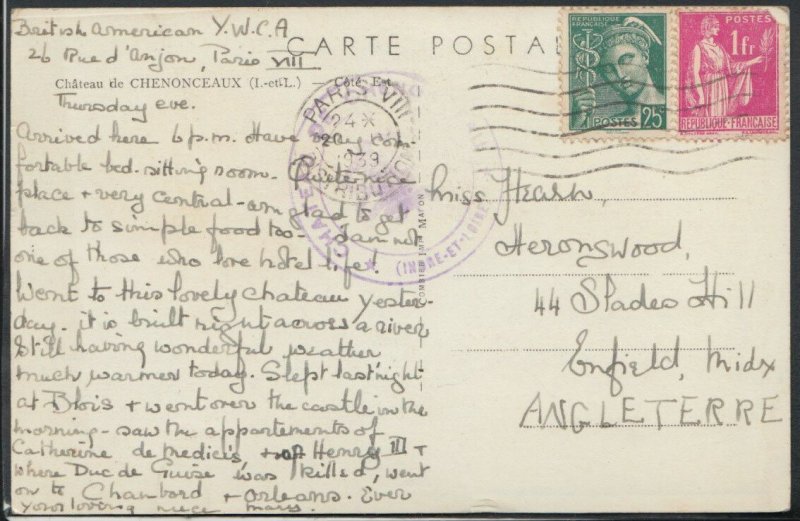 British American Y.W.C.A
26 Rue d'Anjou, Paris VIII
CARTE POSTAL
Château de CHENONCEAUX (I.-et-L.) — Côté Est
Thursday eve.
Arrived here 6 p.m. Have very com-
fortable bed. sitting room. Quite nice
place + very central - am glad to get
back to simple food too - I am not
one of those who love hotel life!
Went to this lovely chateau yester-
day. it is built right across a river
Still having wonderful weather
much warmer today. Slept last night
at Blois + went over the castle in the
morning - saw the appartements of
Catherine de Medicis + of Henry III +
where Duc de Guise was killed, went
on to Chambord + Orleans. Ever
your loving niece
REPUBLIQUE FRANÇAISE
POSTES 25
POSTES
1fr
REPUBLIQUE-FRANÇAISE
PARIS VIII
24
1939
DISTRIBUTION
(INDRE-ET-LOIRE)
COMBIER IMP. MACON
Miss Hearn,
Heronswood,
44 Slades Hill
Enfield, Midx
ANGLETERRE